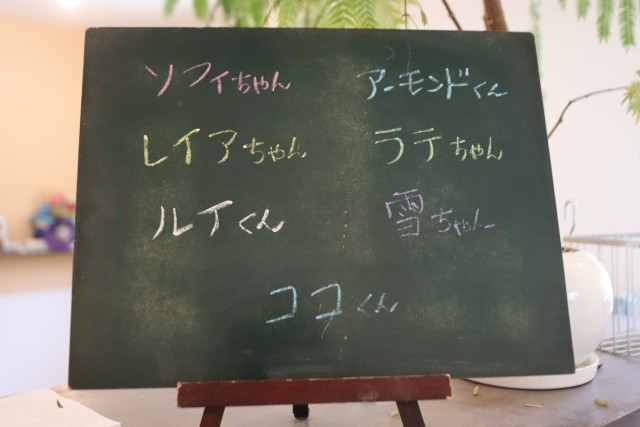 ソフィちゃん
アーモンドくん
レイアちゃん
ラテちゃん
ルイくん
雪ちゃん
ココくん